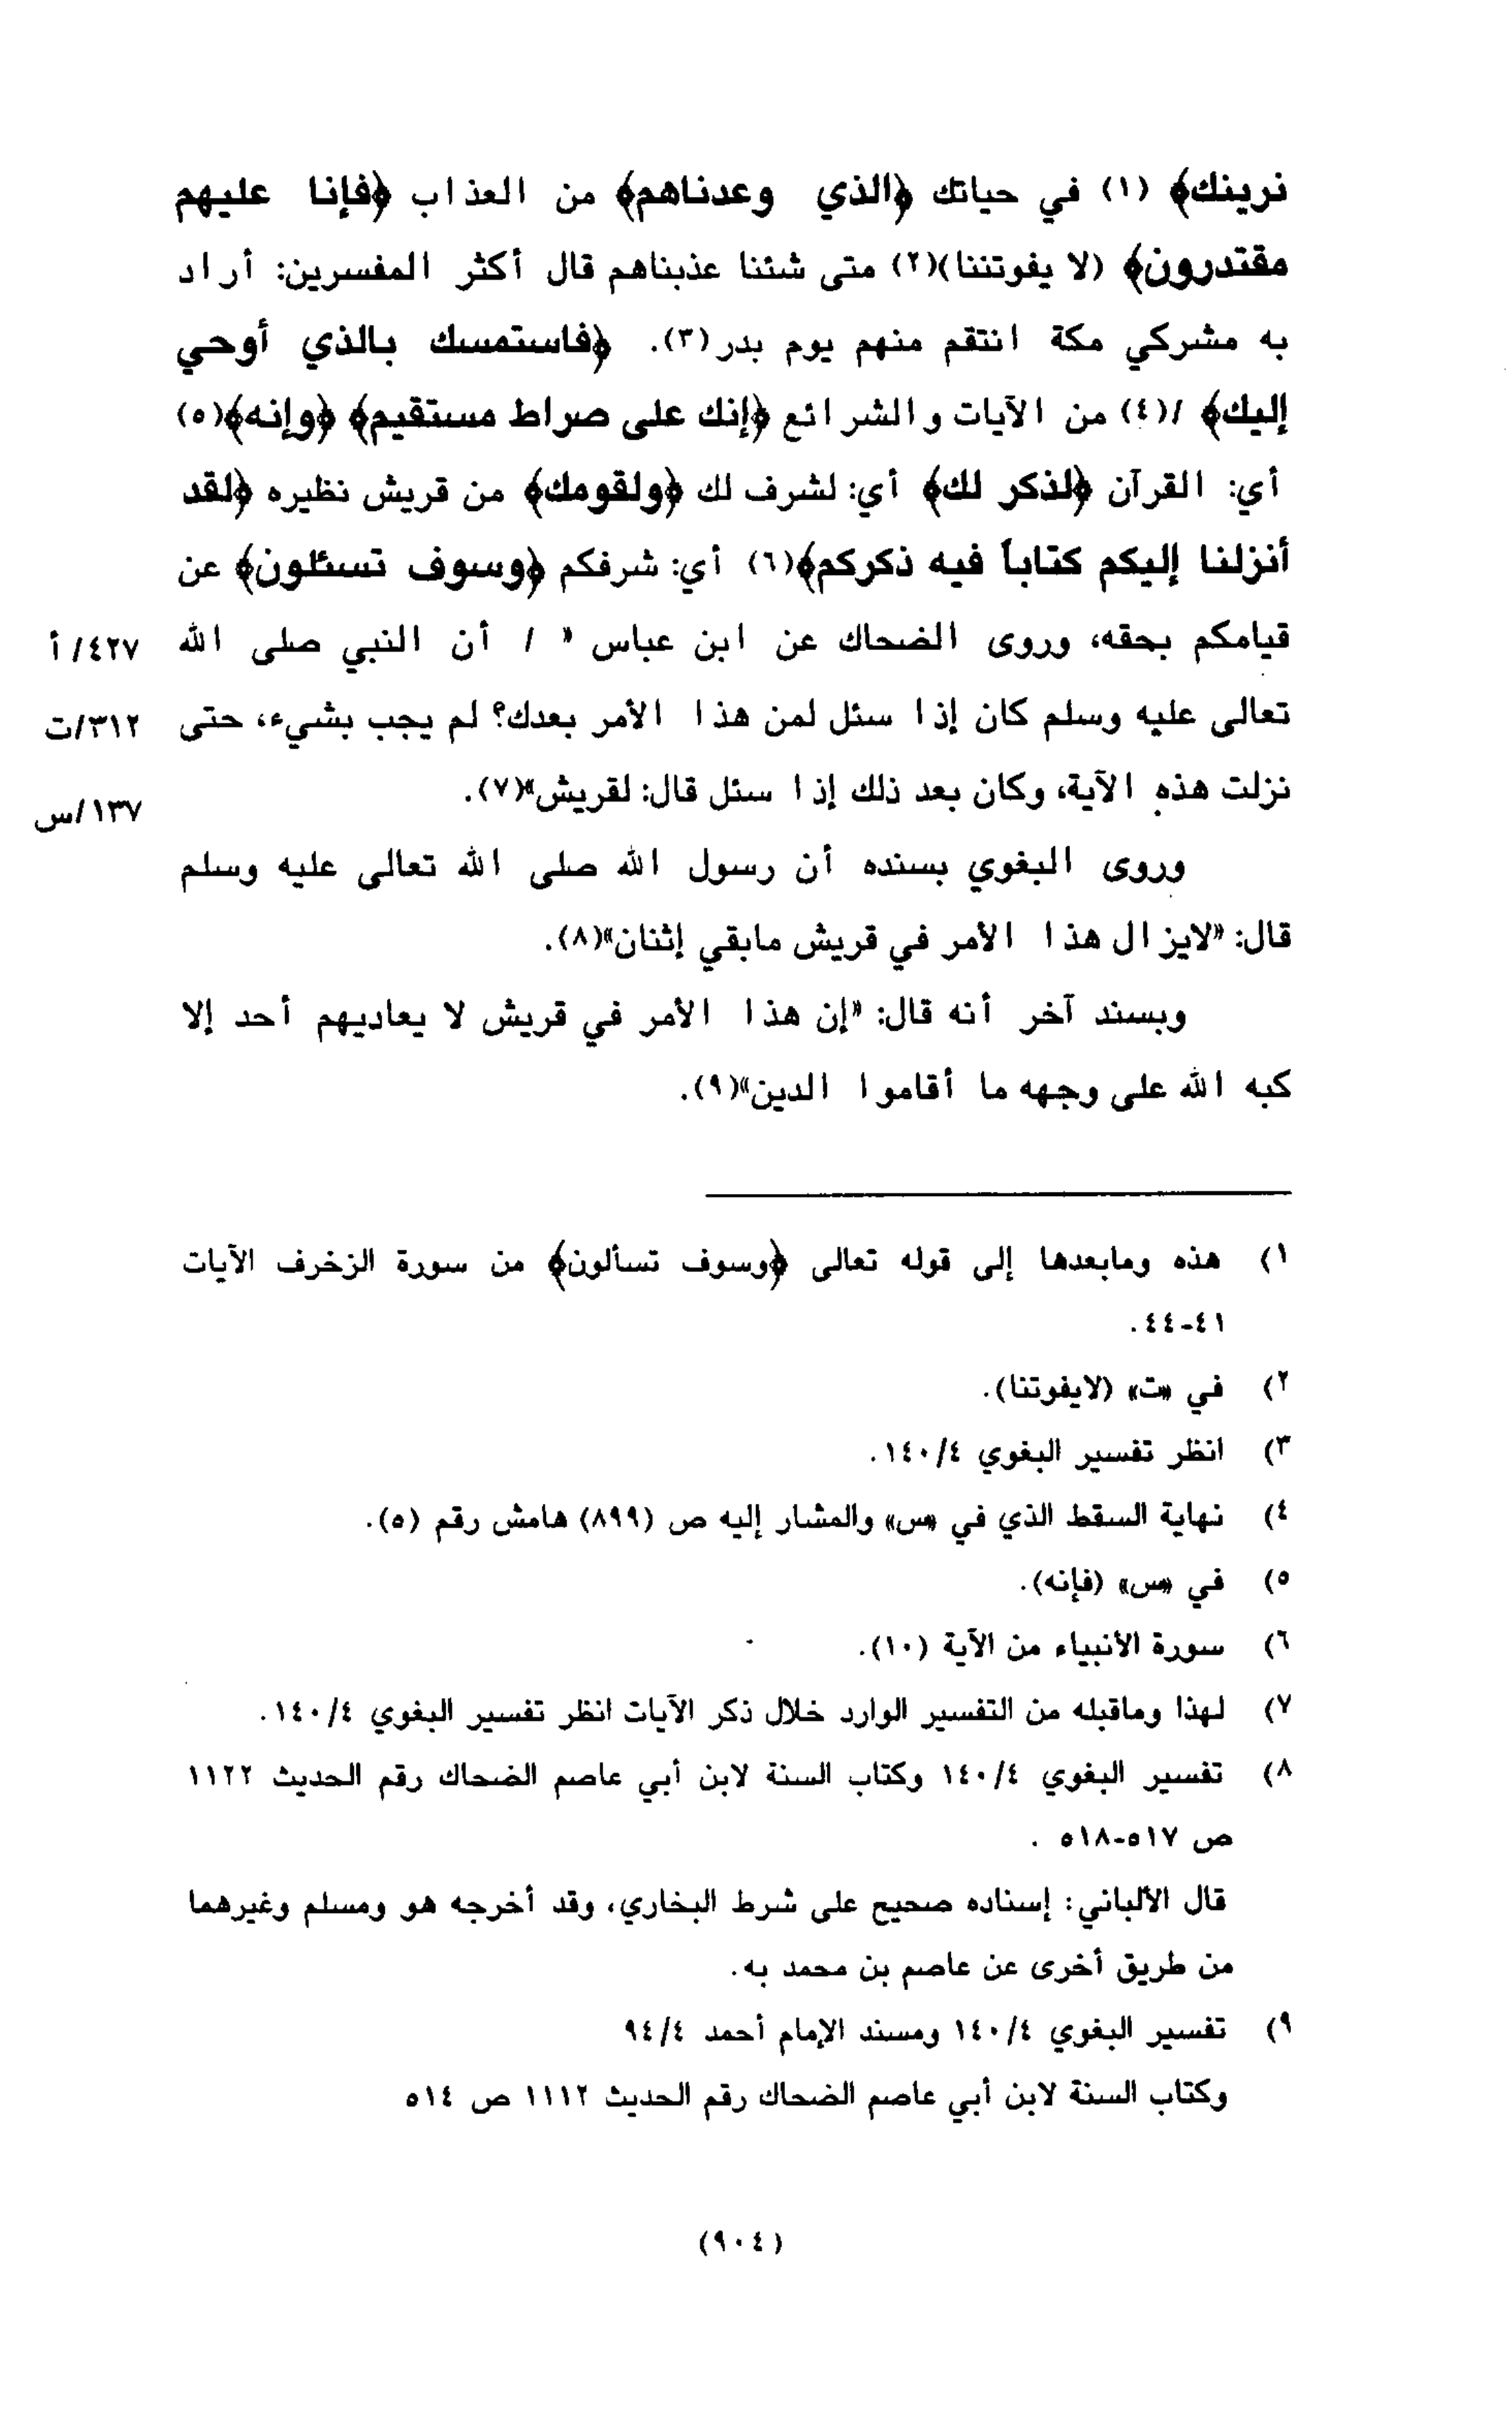 نرينك﴾ (١) في حياتك ﴿الذي وعدناهم﴾ من العذاب ﴿فإنا عليهم
مقتدرون﴾ (لا يفوتننا)(٢) متى شئنا عذبناهم قال أكثر المفسرين: أراد
به مشركي مكة انتقم منهم يوم بدر(٣). ﴿فاستمسك بالذي أوحي
إليك﴾ /(٤) من الآيات والشرائع ﴿إنك على صراط مستقيم﴾ ﴿وإنه﴾(٥)
أي: القرآن ﴿لذكر لك﴾ أي: لشرف لك ﴿ولقومك﴾ من قريش نظيره ﴿لقد
أنزلنا إليكم كتاباً فيه ذكركم﴾(٦) أي: شرفكم ﴿وسوف تسئلون﴾ عن
قيامكم بحقه، وروى الضحاك عن ابن عباس " / أن النبي صلى الله
٤٢٧/ أ
تعالى عليه وسلم كان إذا سئل لمن هذا الأمر بعدك؟ لم يجب بشيء، حتى
٣١٢/ت
نزلت هذه الآية، وكان بعد ذلك إذا سئل قال: لقريش"(٧).
١٣٧/س
وروى البغوي بسنده أن رسول الله صلى الله تعالى عليه وسلم
قال: "لايزال هذا الأمر في قريش مابقي إثنان"(٨).
وبسند آخر أنه قال: "إن هذا الأمر في قريش لا يعاديهم أحد إلا
كبه الله على وجهه ما أقاموا الدين"(٩).
١) هذه ومابعدها إلى قوله تعالى ﴿وسوف تسألون﴾ من سورة الزخرف الآيات
٤١-٤٤.
٢) في «ت» (لايفوتنا).
٣) انظر تفسير البغوي ١٤٠/٤.
٤) نهاية السقط الذي في «س» والمشار إليه ص (٨٩٩) هامش رقم (٥).
٥) في «س» (فإنه).
٦) سورة الأنبياء من الآية (١٠).
٧) لهذا وماقبله من التفسير الوارد خلال ذكر الآيات انظر تفسير البغوي ١٤٠/٤.
٨) تفسير البغوي ١٤٠/٤ وكتاب السنة لابن أبي عاصم الضحاك رقم الحديث ١١٢٢
ص ٥١٧-٥١٨ .
قال الألباني: إسناده صحيح على شرط البخاري، وقد أخرجه هو ومسلم وغيرهما
من طريق أخرى عن عاصم بن محمد به.
٩) تفسير البغوي ١٤٠/٤ ومسند الإمام أحمد ٩٤/٤
وكتاب السنة لابن أبي عاصم الضحاك رقم الحديث ١١١٢ ص ٥١٤
(٩٠٤)